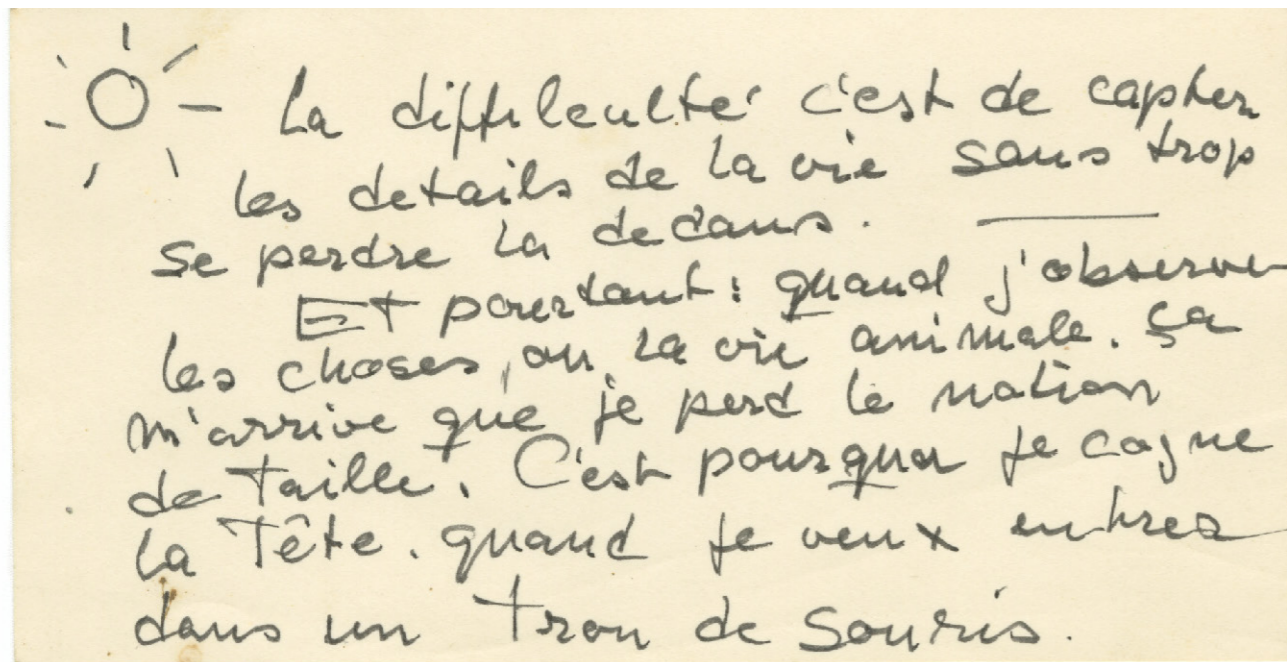 La diffileulté c'est de capter
les details de la vie sans trop
se perdre la dedans.
Et pourtant : quand j'observe
les choses, ou la vie animale. ça
m'arrive que je perd le notion
de taille. C'est pourquoi je cogne
la Tête. quand je veux entrer
dans un Trou de souris.